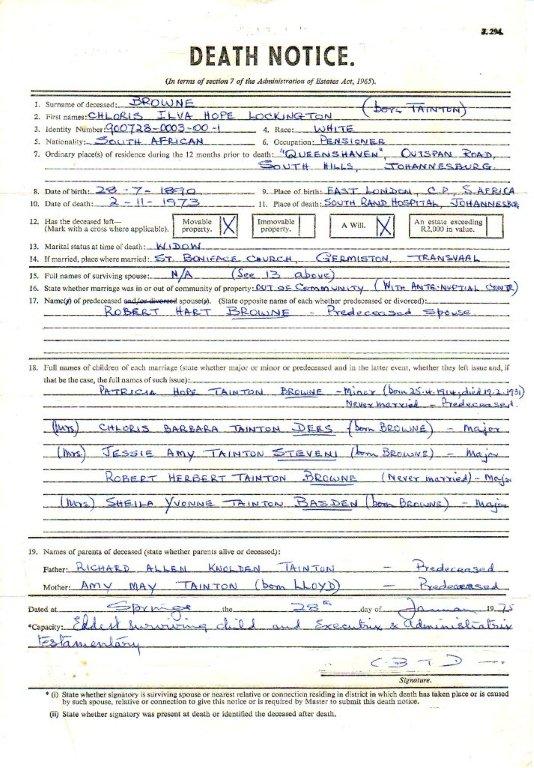 J.294.
DEATH NOTICE.
(In terms of section 7 of the Administration of Estates Act, 1965).
1. Surname of deceased: BROWNE (born TAINTON)
2. First names: CHLORIS ILVA HOPE LOCKINGTON
3. Identity Number: 900728-0003-00-1 4. Race: WHITE
5. Nationality: SOUTH AFRICAN 6. Occupation: PENSIONER
7. Ordinary place(s) of residence during the 12 months prior to death: "QUEENSHAVEN", OUTSPAN ROAD,
SOUTH HILLS, JOHANNESBURG.
8. Date of birth: 28-7-1890 9. Place of birth: EAST LONDON, C.P., S. AFRICA
10. Date of death: 2-11-1973 11. Place of death: SOUTH RAND HOSPITAL, JOHANNESBURG
12. Has the deceased left— (Mark with a cross where applicable). Movable property. X Immovable property. A Will. X An estate exceeding R2,000 in value.
13. Marital status at time of death: WIDOW
14. If married, place where married: ST. BONIFACE CHURCH, GERMISTON, TRANSVAAL
15. Full names of surviving spouse: N/A (See 13 above)
16. State whether marriage was in or out of community of property: OUT OF COMMUNITY (WITH ANTE-NUPTIAL CONTR)
17. Name(s) of predeceased and/or divorced spouse(s). (State opposite name of each whether predeceased or divorced):
ROBERT HART BROWNE - Predeceased Spouse
18. Full names of children of each marriage (state whether major or minor or predeceased and in the latter event, whether they left issue and, if
that be the case, the full names of such issue):
PATRICIA HOPE TAINTON BROWNE - Minor (born 25-4-1914, died 19-2-1931)
Never married - Predeceased.
(Mrs) CHLORIS BARBARA TAINTON DEES (born BROWNE) - Major
(Mrs) JESSIE AMY TAINTON STEVENI (born BROWNE) - Major
ROBERT HERBERT TAINTON BROWNE (Never married) - Major
(Mrs) SHEILA YVONNE TAINTON BASDEN (born BROWNE) - Major
19. Names of parents of deceased (state whether parents alive or deceased):
Father: RICHARD ALLEN KNOLDEN TAINTON - Predeceased
Mother: AMY MAY TAINTON (born LLOYD) - Predeceased
Dated at Springs the 28th day of January 1975
*Capacity: Eldest surviving child and Executrix & Administratrix
Testamentary
Signature.
* (i) State whether signatory is surviving spouse or nearest relative or connection residing in district in which death has taken place or is caused
by such spouse, relative or connection to give this notice or is required by Master to submit this death notice.
(ii) State whether signatory was present at death or identified the deceased after death.